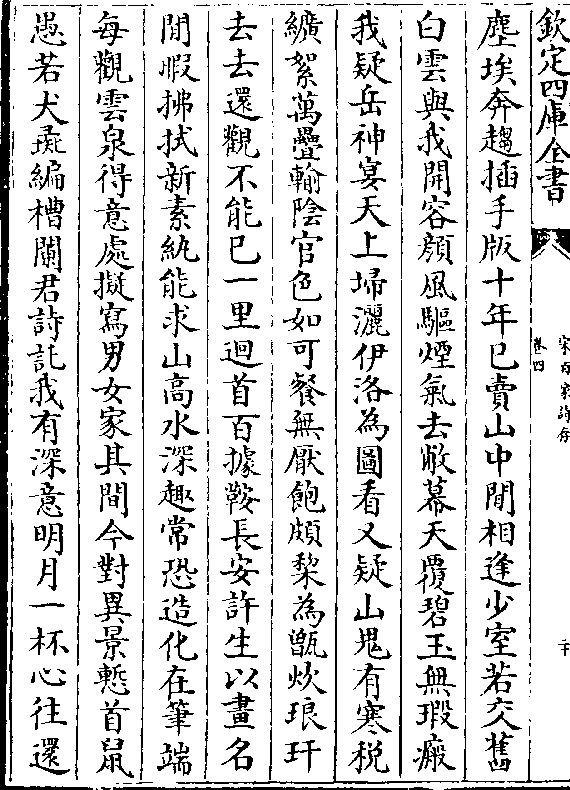 欽定四庫全書
宋百家詩存
卷四
二十
塵埃奔趨插手版十年已賣山中閒相逢少室若交舊
白雲與我開容顏風驅煙氣去敝幕天覆碧玉無瑕瘢
我疑岳神宴天上埽灑伊洛為圖看又疑山鬼有寒税
纊絮萬疊輸陰官色如可餐無厭飽頗棃為甑炊琅玕
去去還觀不能已一里迴首百據鞍長安許生以畫名
閒暇拂拭新素紈能求山高水深趣常恐造化在筆端
每觀雲泉得意處擬寫男女家其間今對異景慙首鼠
愚若犬彘編槽闌君詩託我有深意明月一杯心往還